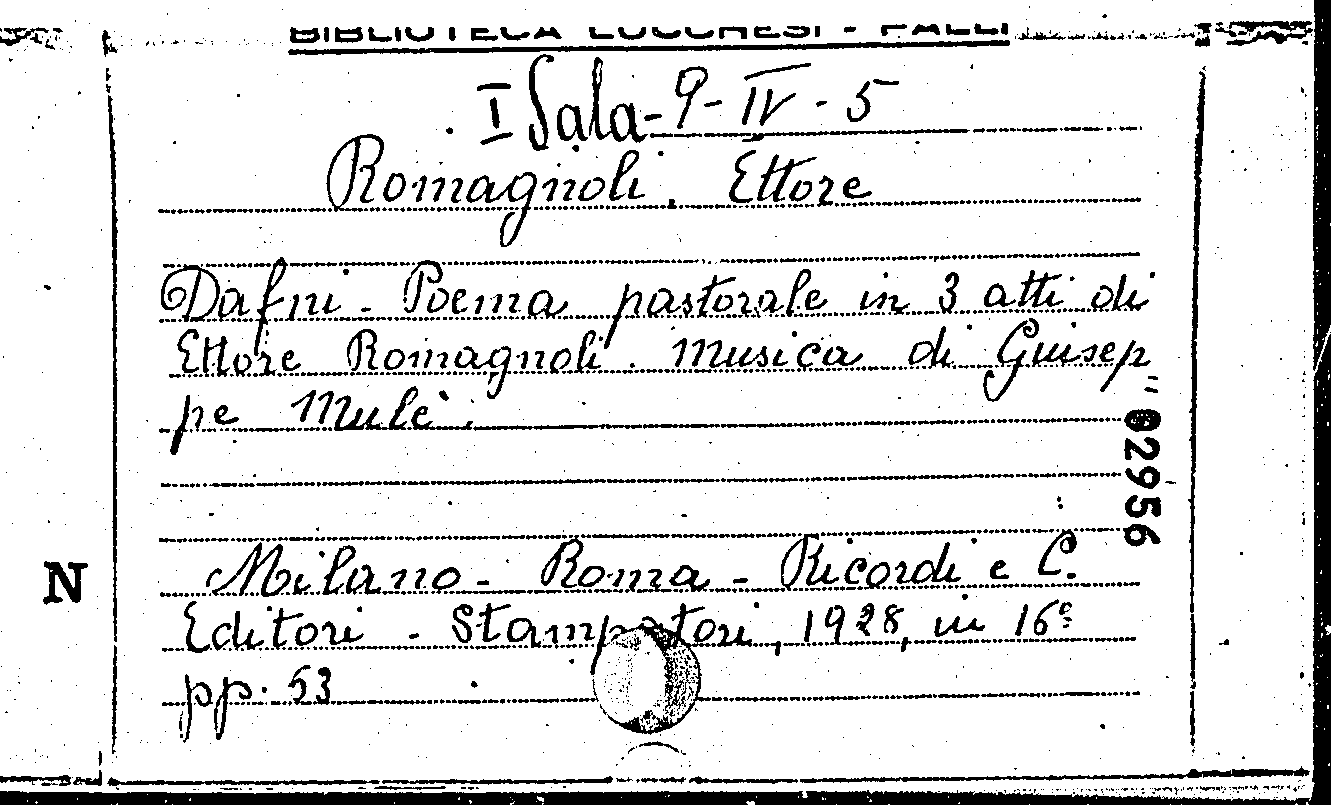 BIBLIOTECA LUCCHESI - PALLI
I Sala - 9 - IV - 5
Romagnoli. Ettore
Dafni - Poema pastorale in 3 atti di
Ettore Romagnoli. Musica di Guisep=
pe Mulè.
02956
N
Milano - Roma - Ricordi e C.
Editori - Stampatori, 1928, in 16º
pp. 53